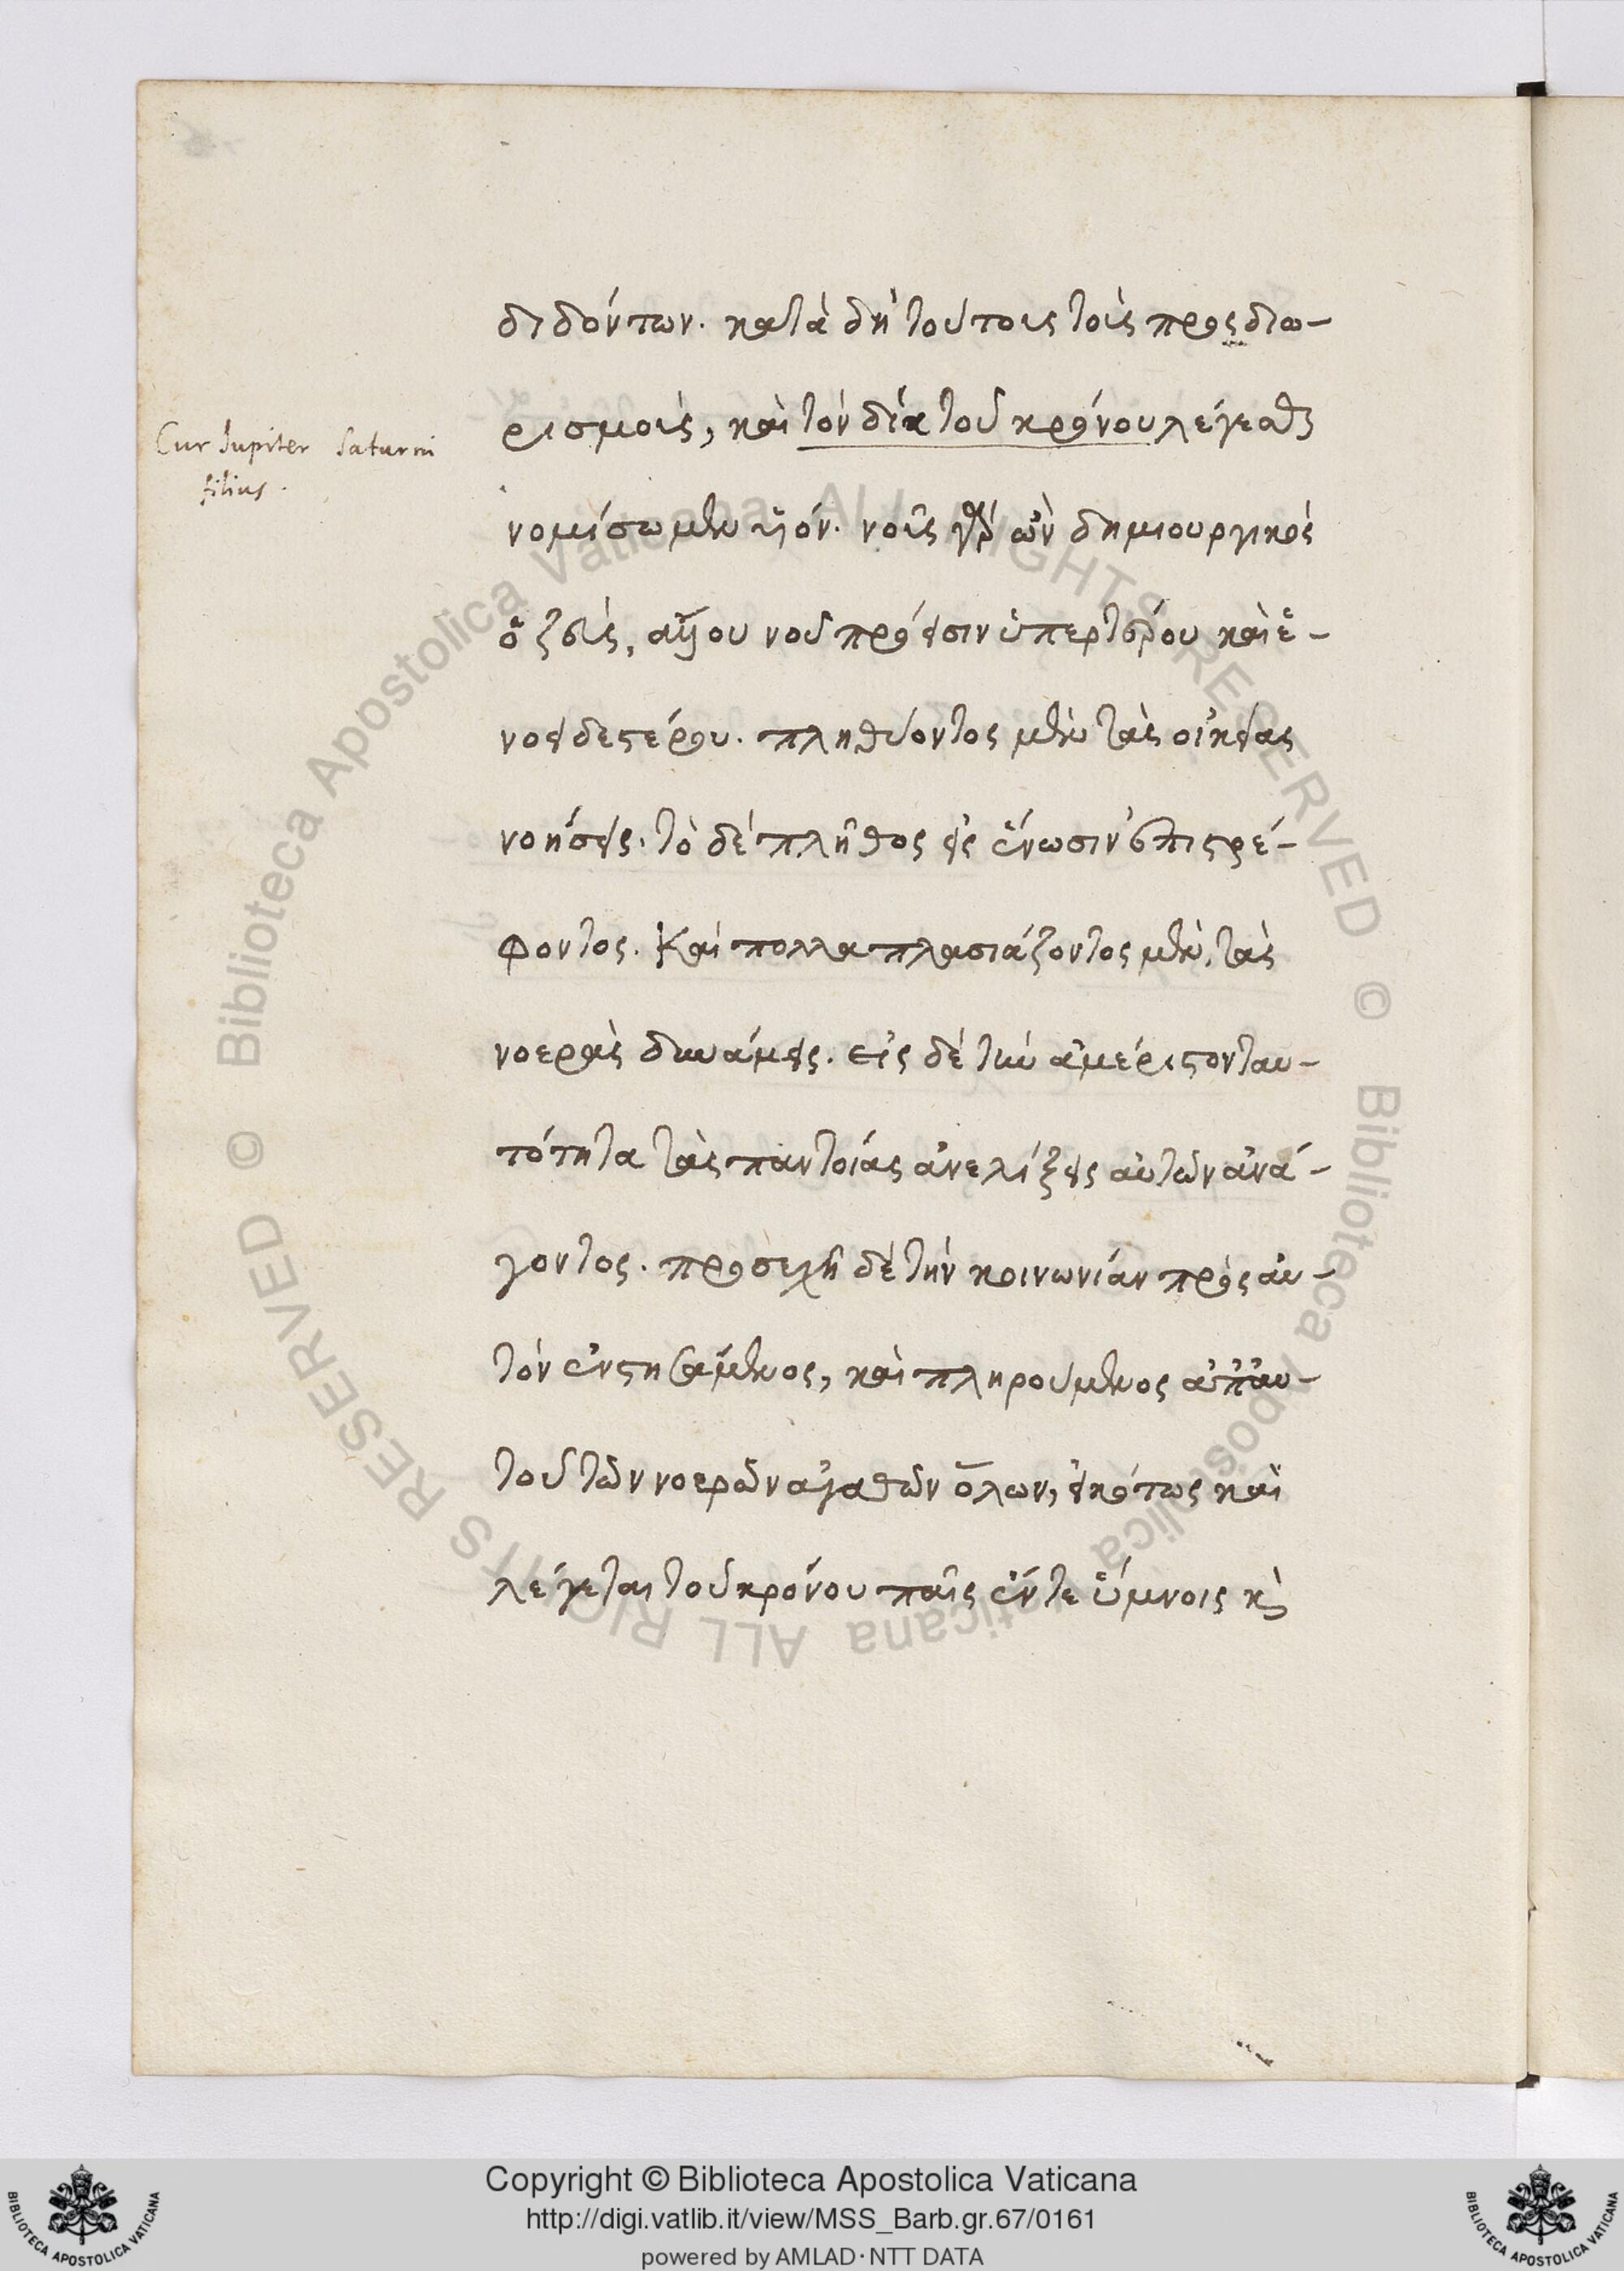 διδόντων. κατὰ δὴ τούτοις τοῖς προςδιω-
ρισμοῖς, καὶ τὸν δία τοῦ κρόνου λέγεσθαι
Cur Jupiter Saturni
filius.
νομίσωμεν υἱόν. νοῦς γὰρ ὢν δημιουργικὸς
ὁ ζεὺς, ἄλλου νοῦ πρόεισιν ὑπερτέρου καὶ ἑ-
νοειδεστέρου. πληθύοντος μὲν τὰς οἰκείας
νοήσεις. τὸ δὲ πλῆθος εἰς ἕνωσιν ἐπιστρέ-
φοντος. Καὶ πολλαπλασιάζοντος μὲν, τὰς
νοερὰς δυνάμεις. εἰς δὲ τὴν ἀμέριστον ταυ-
τότητα τὰς παντοίας ἀνελίξεις αὐτῶν ἀνά-
γοντος. προσεχῆ δὲ τὴν κοινωνίαν πρὸς αὐ-
τὸν ἐνστησάμενος, καὶ πληρούμενος ἀπ' αὐ-
τοῦ τῶν νοερῶν ἀγαθῶν ὅλων, εἰκότως καὶ
λέγεται τοῦ κρόνου παῖς ἔν τε ὕμνοις κὶ
© Biblioteca Apostolica Vaticana ALL RIGHTS RESERVED © Biblioteca Apostolica Vaticana ALL RIGHTS RESERVED
Copyright © Biblioteca Apostolica Vaticana
http://digi.vatlib.it/view/MSS_Barb.gr.67/0161
powered by AMLAD·NTT DATA
BIBLIOTECA APOSTOLICA VATICANA
BIBLIOTECA APOSTOLICA VATICANA